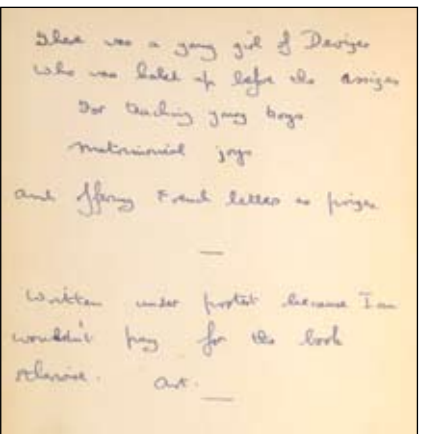 There was a young girl of Devizes
Who was haled up before the assizes
For teaching young boys
matrimonial joys
and offering French letters as prizes
Written under protest because Ian
wouldn't pay for the book
otherwise.